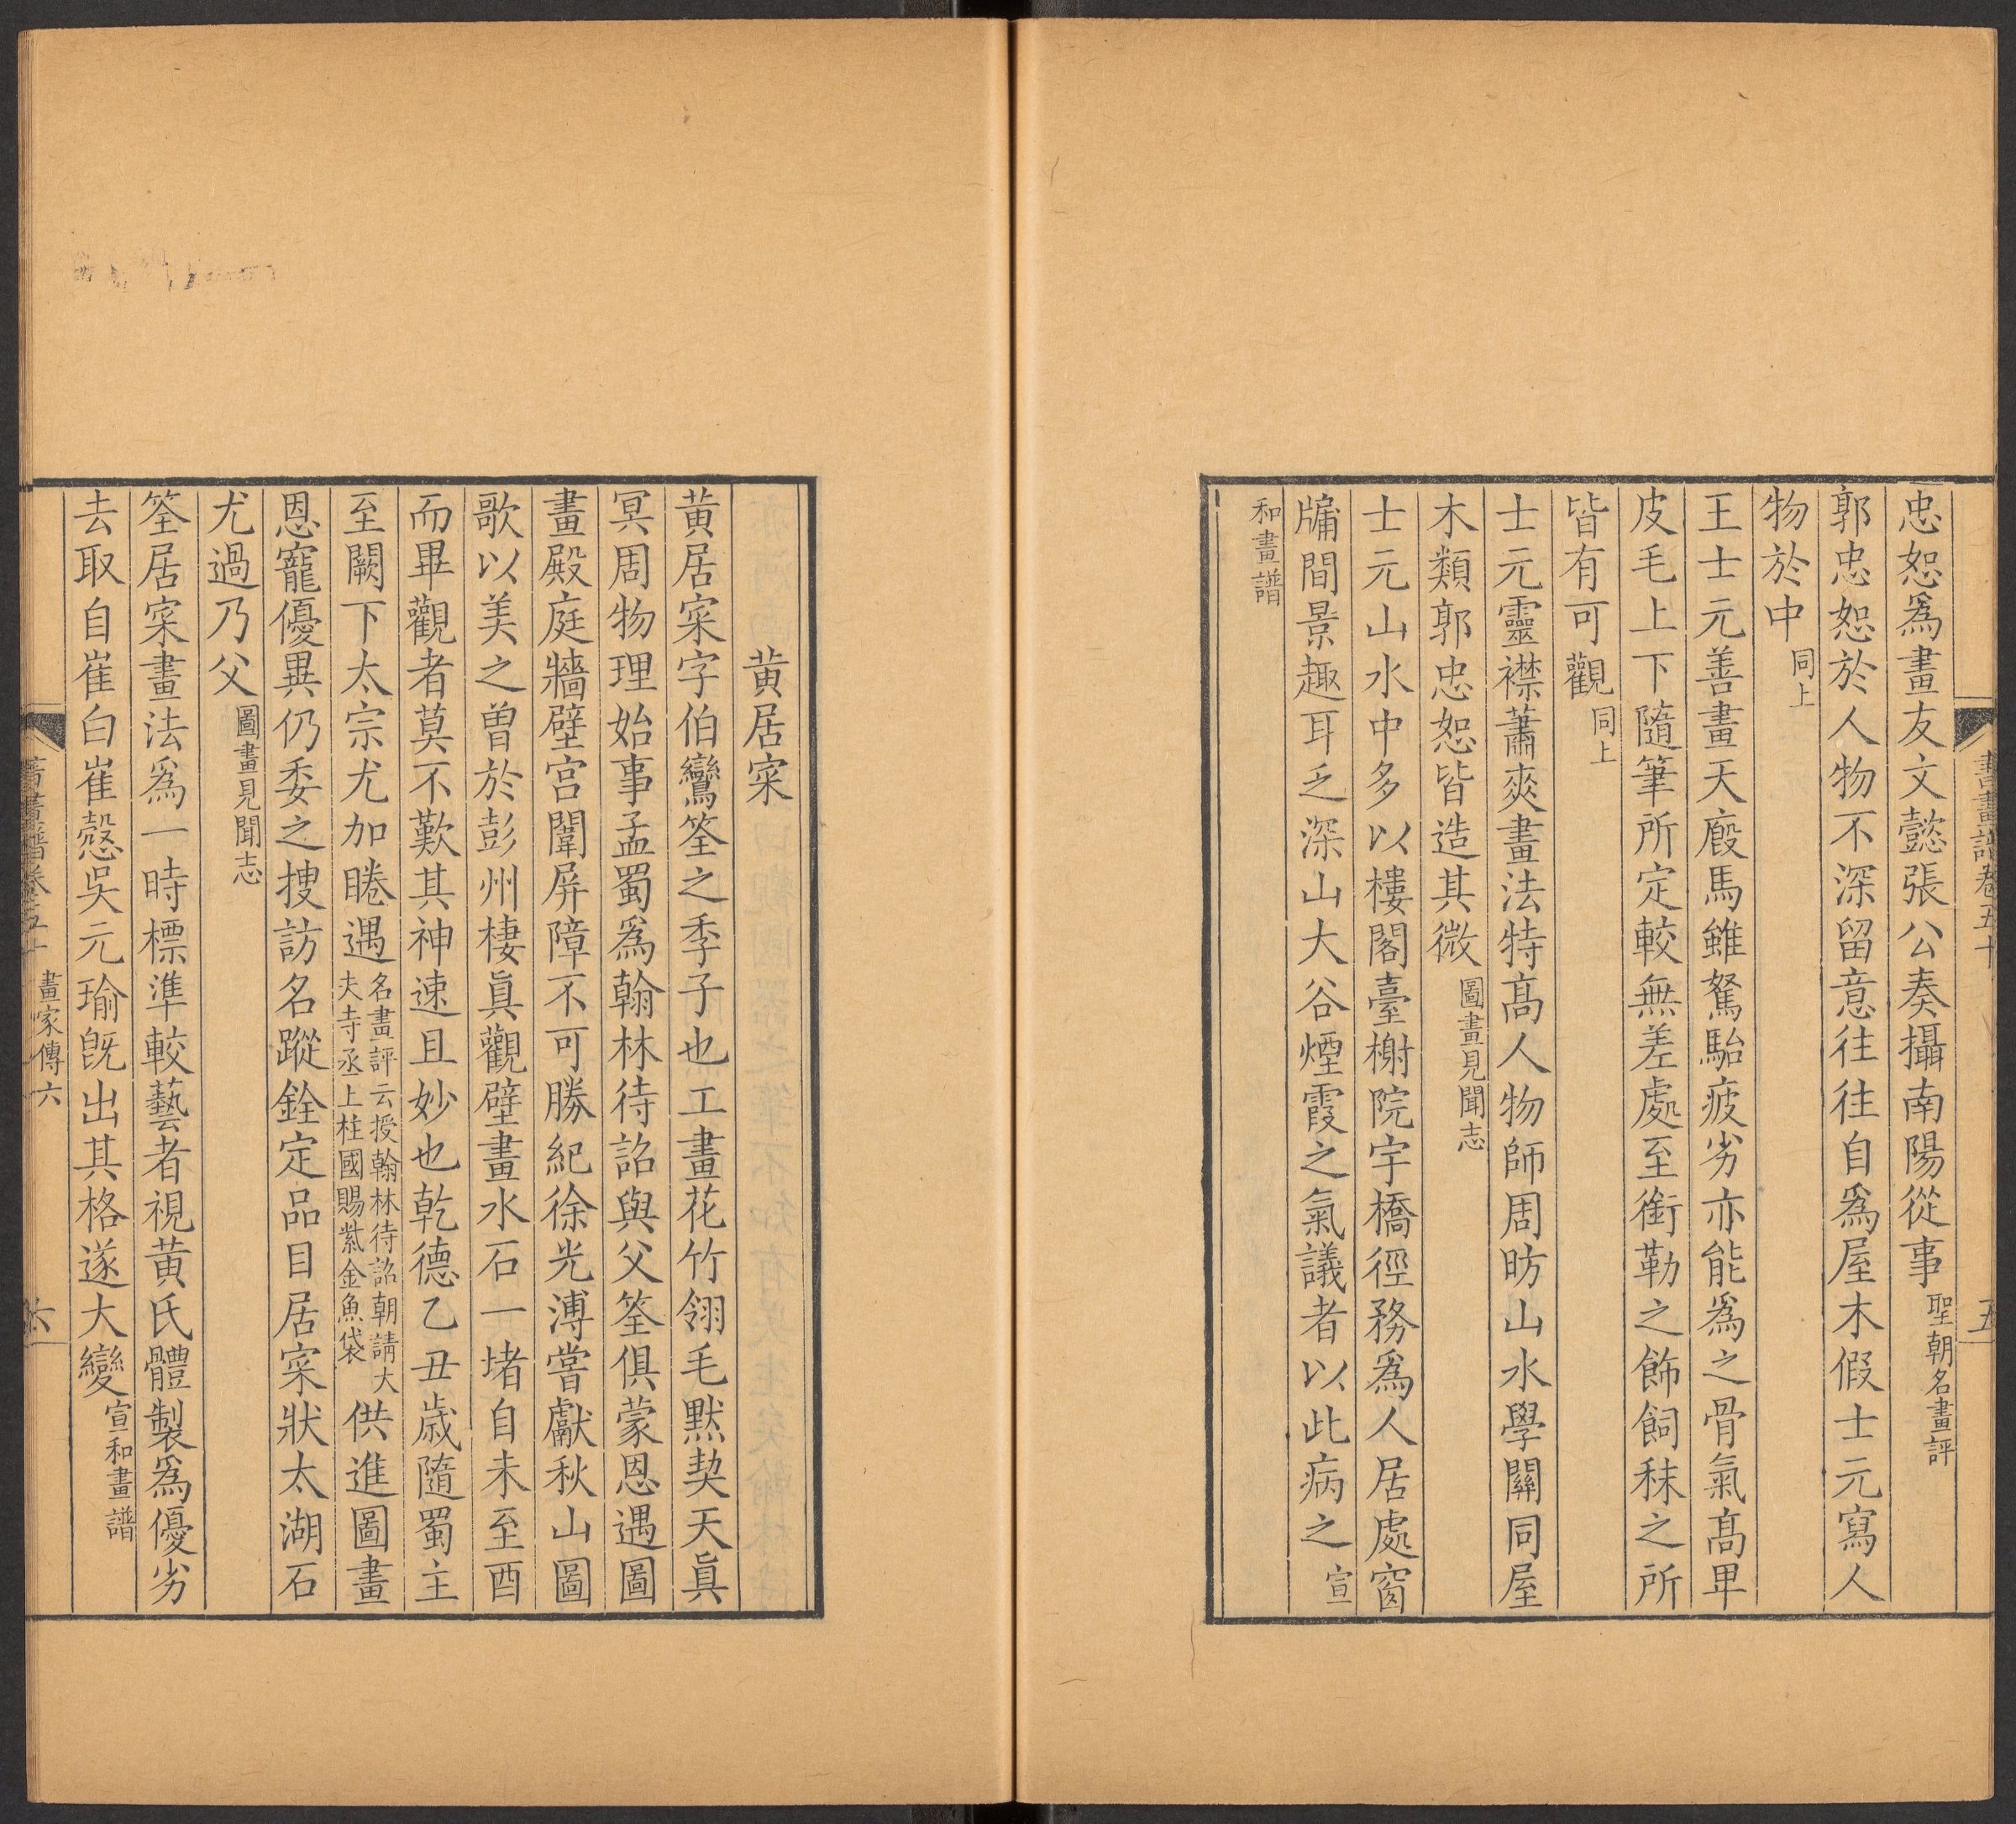 書畫譜卷五十
五
忠恕爲畫友文懿張公奏攝南陽從事聖朝名畫評
郭忠恕於人物不深留意往往自爲屋木假士元寫人
物於中同上
王士元善畫天廏馬雖駑駘疲劣亦能爲之骨氣髙卑
皮毛上下隨筆所定較無差處至銜勒之飾飼秣之所
皆有可觀同上
士元靈襟蕭爽畫法特髙人物師周昉山水學關同屋
木類郭忠恕皆造其微圖畫見聞志
士元山水中多以樓閣臺榭院宇橋徑務爲人居處窗
牖間景趣耳乏深山大谷煙霞之氣議者以此病之宣
和畫譜
黃居寀
黃居寀字伯鸞筌之季子也工畫花竹翎毛黙契天眞
冥周物理始事孟蜀爲翰林待詔與父筌俱蒙恩遇圖
畫殿庭牆壁宮闈屏障不可勝紀徐光溥嘗獻秋山圖
歌以美之曾於彭州棲眞觀壁畫水石一堵自未至酉
而畢觀者莫不歎其神速且妙也乾德乙丑歳隨蜀主
至闕下太宗尤加睠遇名畫評云授翰林待詔朝請大夫寺丞上柱國賜紫金魚袋供進圖畫
恩寵優異仍委之搜訪名蹤銓定品目居寀狀太湖石
尤過乃父圖畫見聞志
筌居寀畫法爲一時標準較藝者視黃氏體製爲優劣
去取自崔白崔慤吳元瑜旣出其格遂大變宣和畫譜
書畫譜卷五十 畫家傳六
六